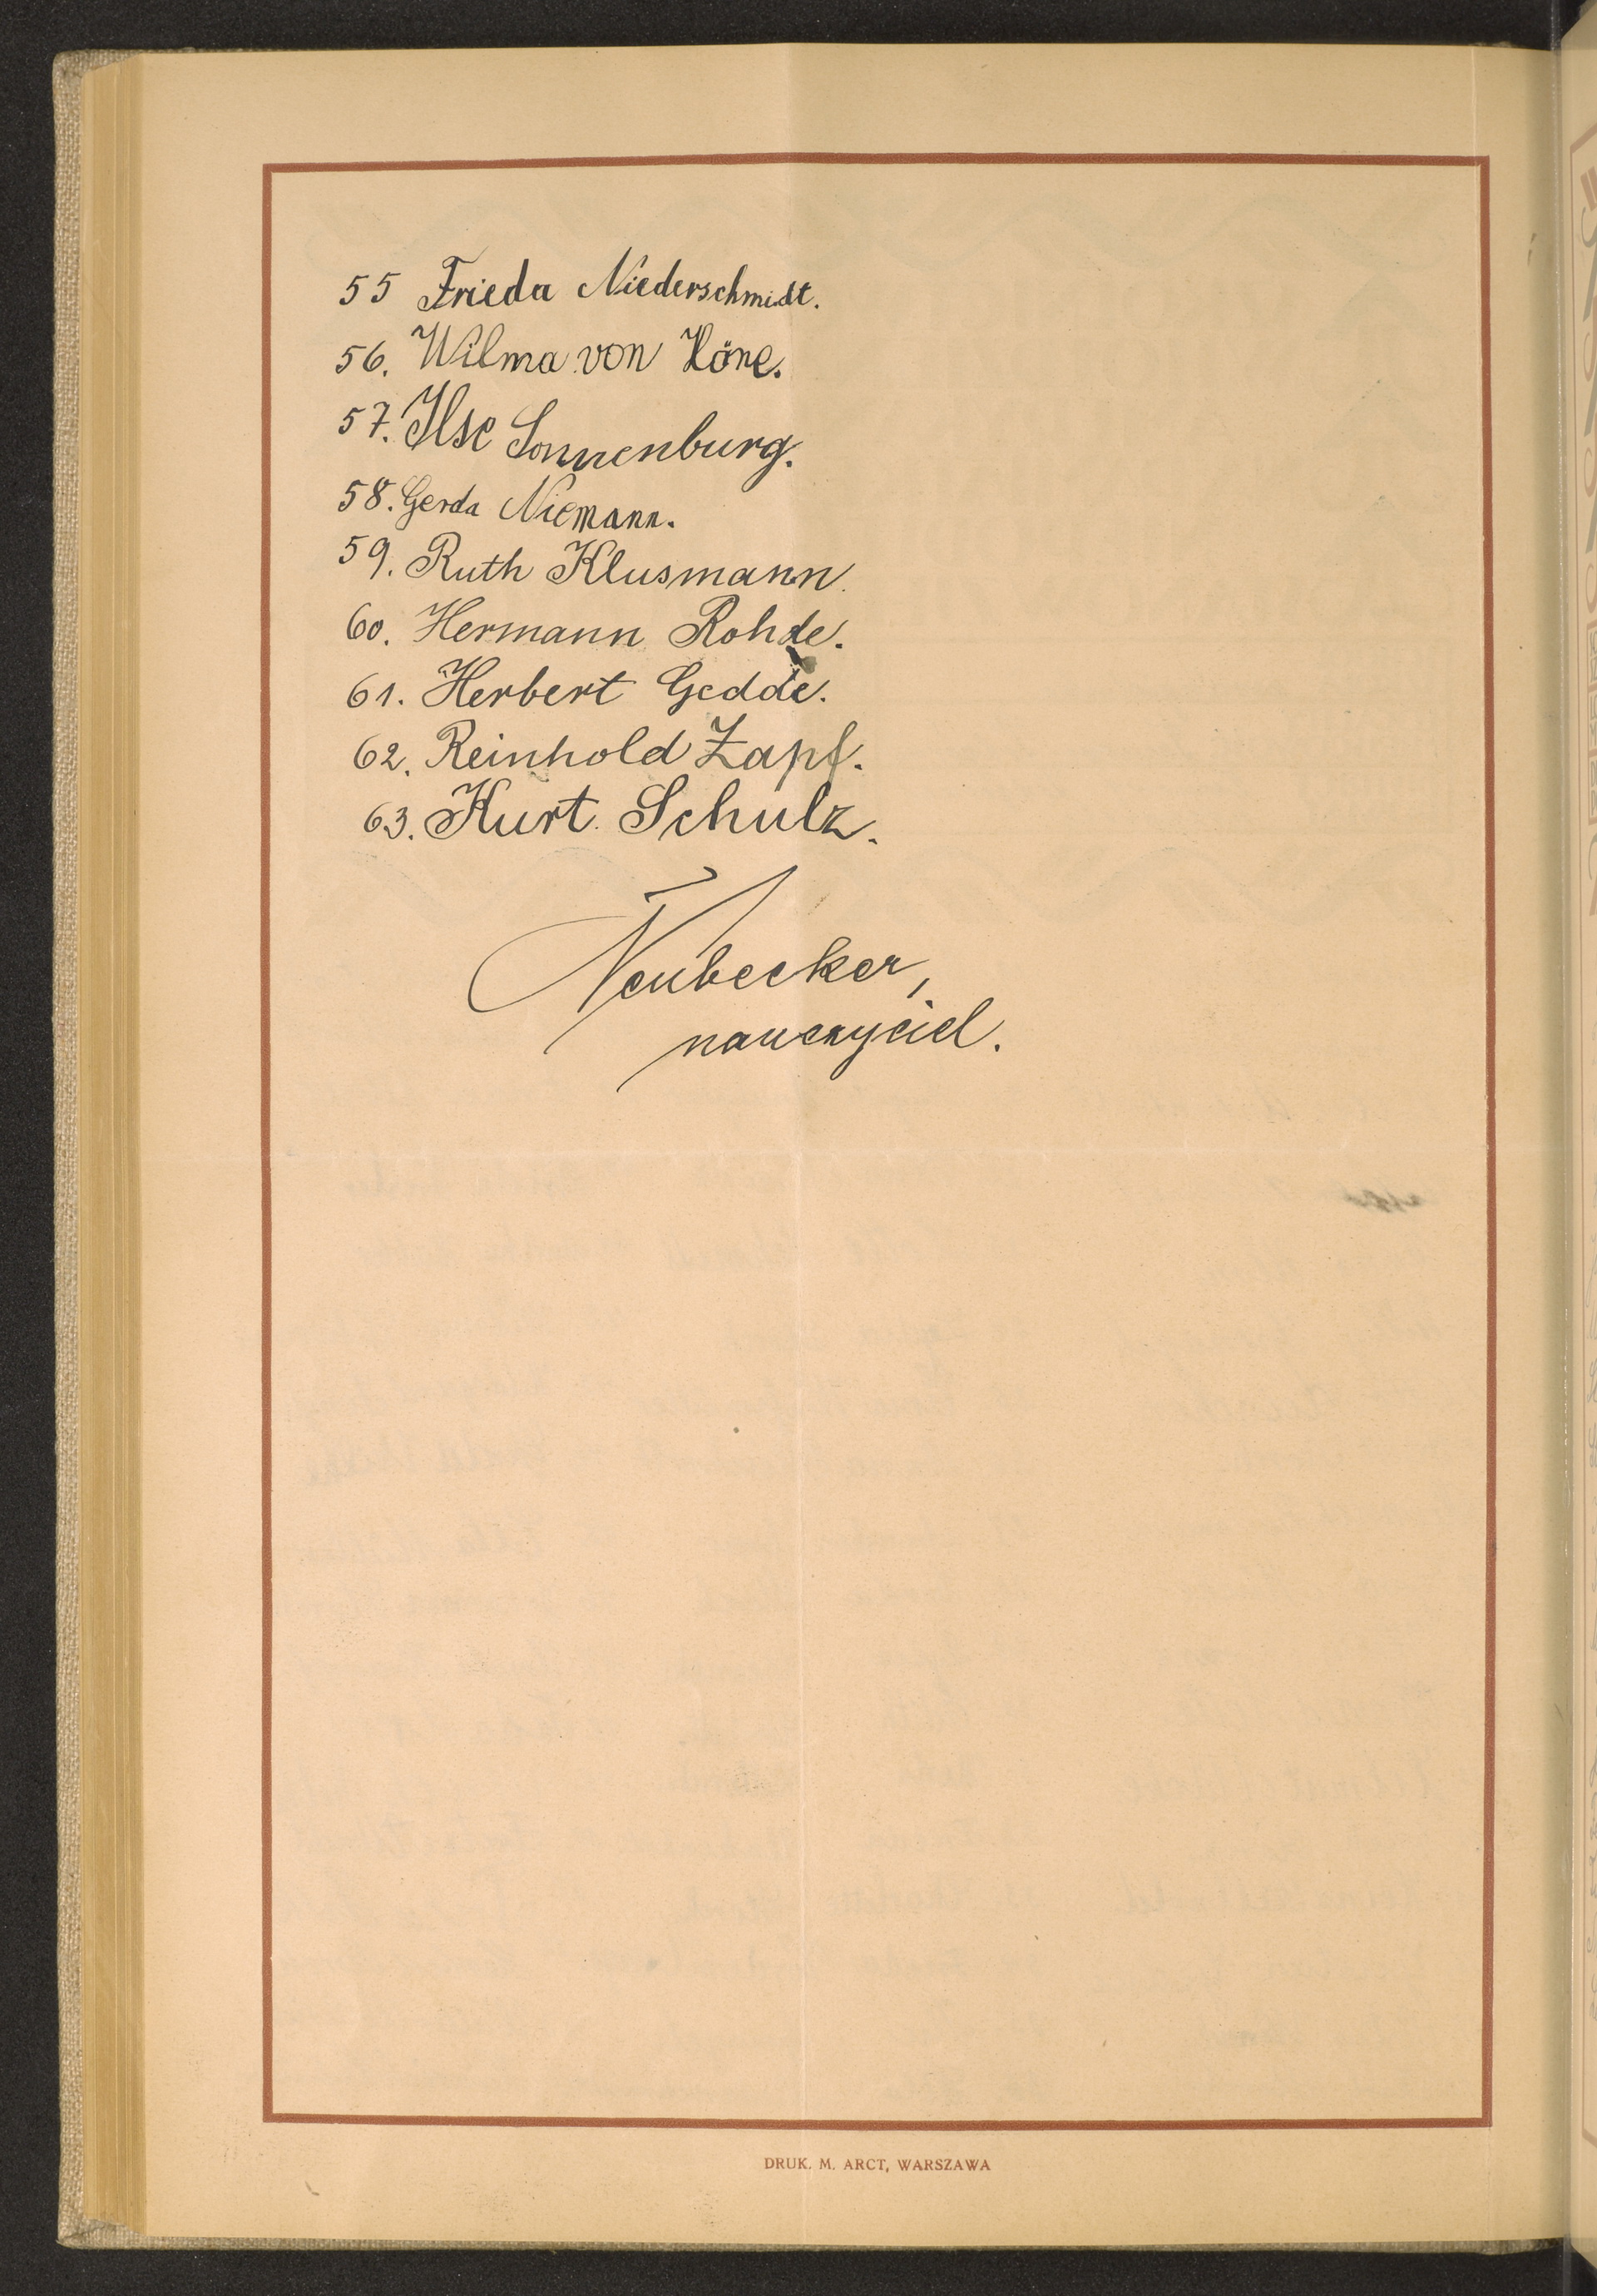 55 Frieda Niederschmidt.
56. Wilma von Höne.
57. Ilse Sonnenburg.
58. Gerda Niemann.
59. Ruth Klusmann.
60. Hermann Rohde.
61. Herbert Gedde.
62. Reinhold Zapf.
63. Kurt Schulz.
Neubecker,
nauczyciel.
DRUK. M. ARCT, WARSZAWA